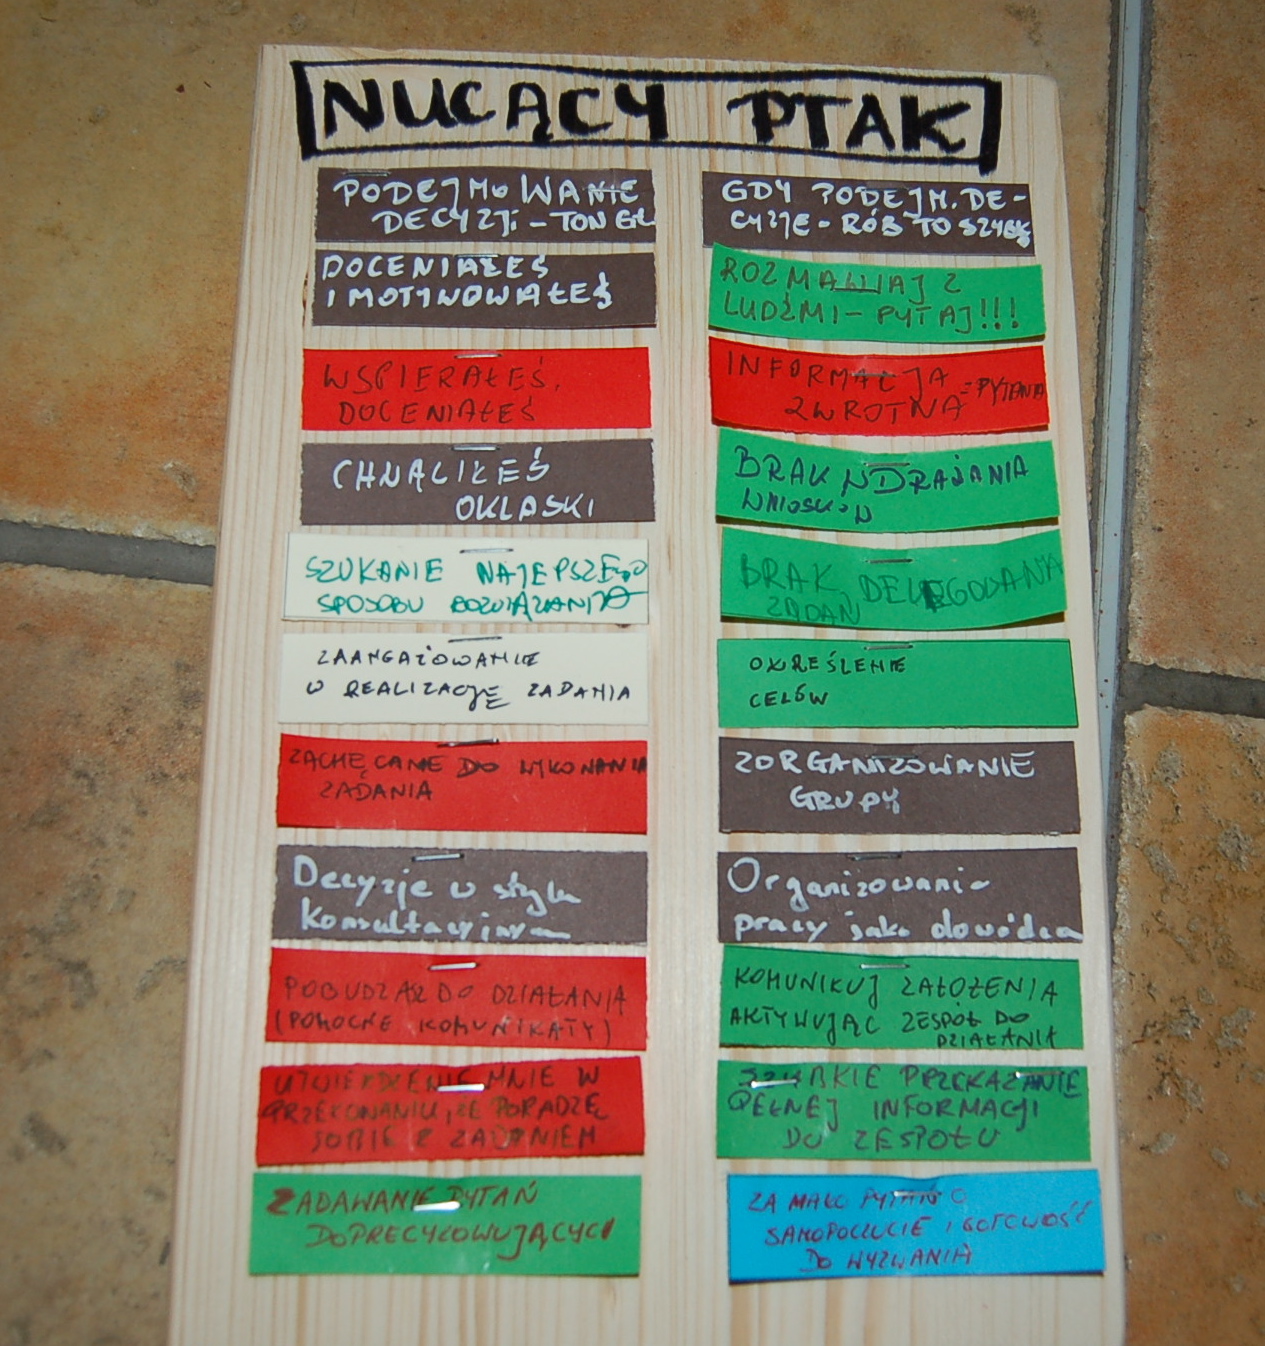 NUCĄCY PTAK
PODEJMOWANIE
DECYZJI - TON GŁ
DOCENIAŁEŚ
I MOTYWOWAŁEŚ
WSPIERAŁEŚ,
DOCENIAŁEŚ
CHWALIŁEŚ
OKLASKI
SZUKANIE NAJEPSZEGO
SPOSOBU ROZWIĄZANIA
ZAANGAŻOWANIE
W REALIZACJĘ ZADANIA
ZACHĘCANIE DO WYKONANIA
ZADANIA
Decyzje w stylu
konsultacyjnym
POBUDZASZ DO DZIAŁANIA
(POMOCNE KOMUNIKATY)
UTWIERDZENIE MNIE W
PRZEKONANIU, ŻE PORADZĘ
SOBIE Z ZADANIEM
ZADAWANIE PYTAŃ
DOPRECYZOWUJĄCYCH
GDY PODEJM. DE-
CYZJE - RÓB TO SZYBK
ROZMAWIAJ Z
LUDŹMI - PYTAJ!!!
INFORMACJA
ZWROTNA = PYTANIA
BRAK WDRAŻANIA
WNIOSKÓW
BRAK DELEGOWANIA
ZADAŃ
OKREŚLENIE
CELÓW
ZORGANIZOWANIE
GRUPY
Organizowanie
pracy jako dowódca
KOMUNIKUJ ZAŁOŻENIA
AKTYWUJĄC ZESPÓŁ DO
DZIAŁANIA
SZYBKIE PRZEKAZANIE
PEŁNEJ INFORMACJI
DO ZESPOŁU
ZA MAŁO PYTAŃ O
SAMOPOCZUCIE I GOTOWOŚĆ
DO WYZWANIA